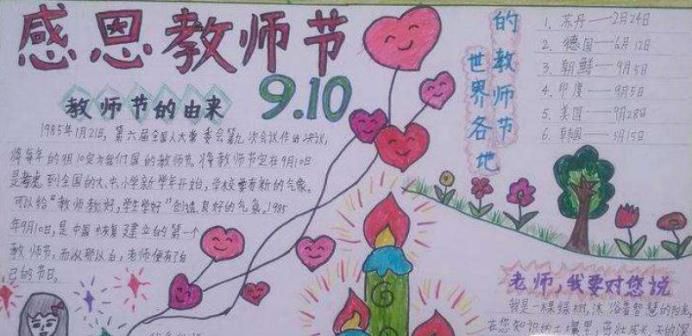 感恩教师节
9.10
教师节的由来
1985年1月21日,第六届全国人大常委会第九次会议作出决议,
将每年的9月10定为我们国的教师节,将教师节定在9月10日
是考虑到全国的大、中、小学新学年开始,学校要有新的气象。
可以给"教师教好,学生学好"创造良好的气象。1985
年9月10日,是中国恢复建立的第一个
教师节,而从那以后,老师便有了自
己的节日。
世界各地
的教师节
1. 苏丹——2月24日
2. 德国——6月12日
3. 朝鲜——9月5日
4. 印度——9月5日
5. 美国——9月28日
6. 韩国——5月15日
老师,我要对您说
我是一棵绿树,沐浴着智慧的阳光